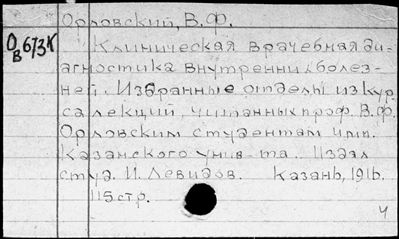 Орловский, В.Ф.
О/В 673к
Клиническая врачебная ди-
агностика внутренних болез-
ней. Избранные отделы из кур-
са лекций, читанных проф. В.Ф.
Орловским студентам имп.
Казанского унив-та. Издал
студ. И. Левидов. Казань, 1916.
115 стр.